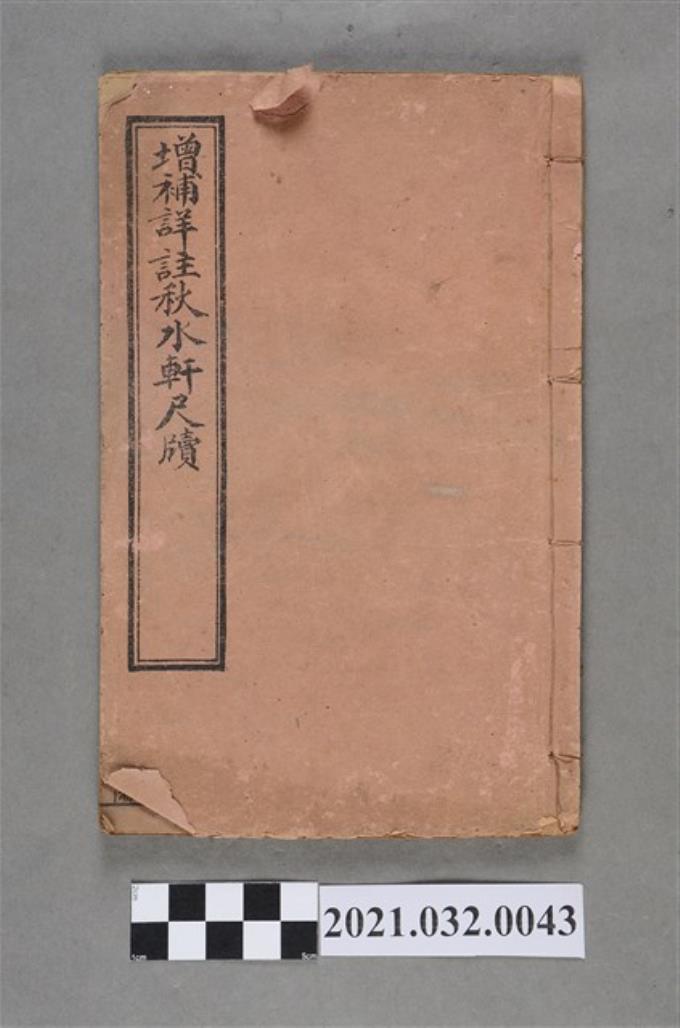 增補詳註秋水軒尺牘
2021.032.0043